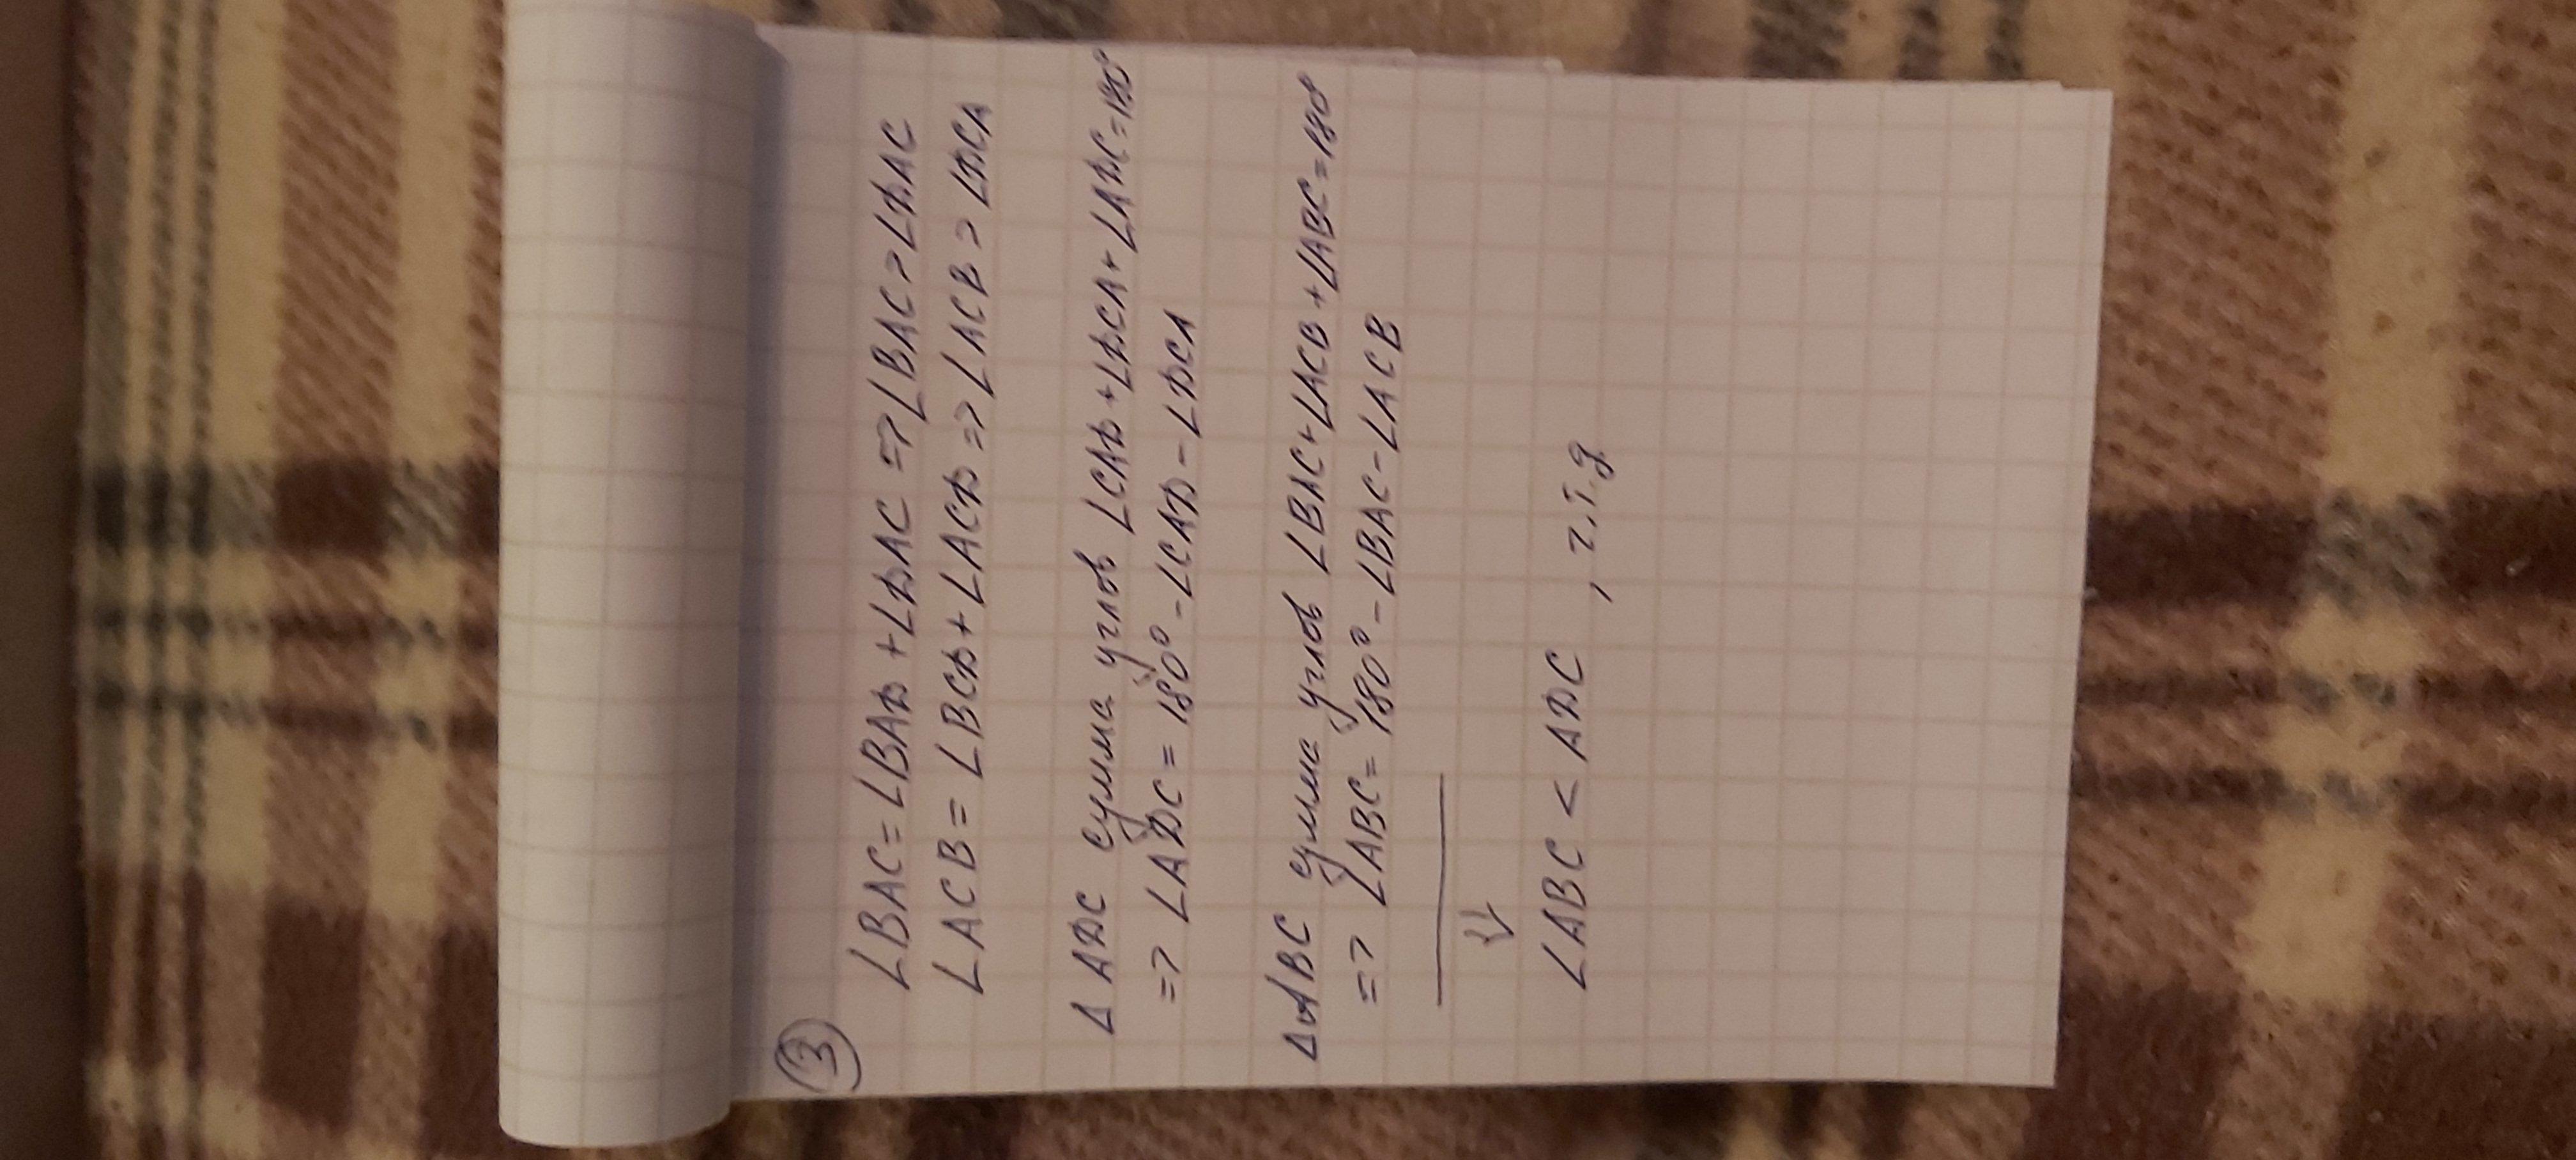 ③
∠BAC = ∠BAD + ∠DAC => ∠BAC > ∠DAC
∠ACB = ∠BCD + ∠ACD => ∠ACB > ∠DCA
Δ ADC сумма углов ∠CAD + ∠DCA + ∠ADC = 180°
=> ∠ADC = 180° - ∠CAD - ∠DCA
Δ ABC сумма углов ∠BAC + ∠ACB + ∠ABC = 180
=> ∠ABC = 180° - ∠BAC - ∠ACB
⇓
∠ABC < ADC , ч.т.д